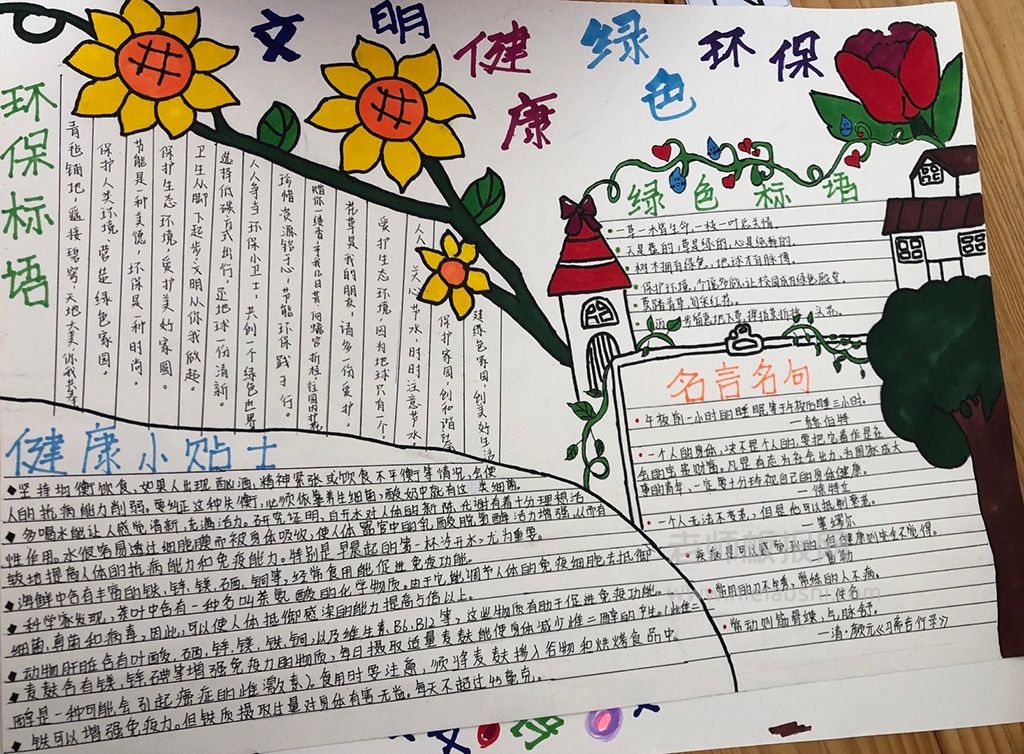 文明健康绿色环保
环保标语
青毡铺地,遥接碧穹,天地大美,你我共享
保护人类环境,营造绿色家园。
节能是一种美德,环保是一种时尚。
保护生态环境,爱护美好家园。
卫生从脚下起步,文明从你我做起
选择低碳方式出行,还地球一份清新。
人人争当环保小卫士,共创一个绿色世界
珍惜资源铭于心,节能环保践于行。
赠你一缕香,予我几日芳,何为窗前折枝,往园内
花草是我的朋友,请多一份爱护。
爱护生态环境,因为地球只有一个,
人人关心节水,时时注意节水
保护家园,创和谐社会
建绿色家园,创美好生活
绿色标语
一草一木皆生命,一枝一叶总关情。
天是蓝的,草是绿的,心是纯静的。
树木拥有绿色,地球才有脉搏
保护环境,
名言名句
午夜前一小时的睡眠等于午夜后睡三小时。
一个人的身体,决不是个人的,要把它看作是在
会的宝贵财富。凡是有志为社会出力,为国家成大
事的青年,一定要十分珍视自己的身体健康。
——徐特立
一个人无法不变老,但是他可以抵制衰老。
——塞缪尔
疾病是可以感觉到的,但健康则完全不觉得。
常用的刀不生锈,常练的人不病。
常动则筋骨竦,气脉舒。
——清·颜元《习斋言行录》
健康小贴士
坚持均衡饮食,如果人出现酗酒,精神紧张或饮食不平衡等情况,会使
人的抗病能力削弱。要纠正这种失衡,必须依靠养生细菌,酸奶中就有这类细菌。
多喝水能让人感觉清新,充满活力。研究证明,白开水对人体的新陈代谢有着十分理想活
性作用。水很容易透过细胞膜而被身体吸收,使人体器官中的乳酸脱氢酶活力增强,从而有
效地提高人体的抗病能力和免疫能力。特别是早晨起的第一杯冷开水,尤为重要。
海鲜中含有丰富的铁、锌、镁、硒、铜等,经常食用能促进免疫功能。
科学家发现,茶叶中含有一种名叫茶氨酸的化学物质。由于它能调节人体的免疫细胞去抵御
细菌,真菌和病毒,因此,可以使人体抵御感染的能力提高5倍以上。
动物肝脏含有叶酸、硒、锌、镁、铁、铜,以及维生素B6,B12等,这些物质有助于促进免疫功能。
麦麸含有镁,锌,碘等增强免疫力的物质,每日摄取适量麦麸能使身体减少雌二醇的产生。(雌二
醇是一种可能会引起癌症的雌激素)。食用时要注意,须将麦麸掺入谷物和烘烤食品中。
铁可以增强免疫力。但铁质摄取过量对身体有害无益,每天不超过45毫克。